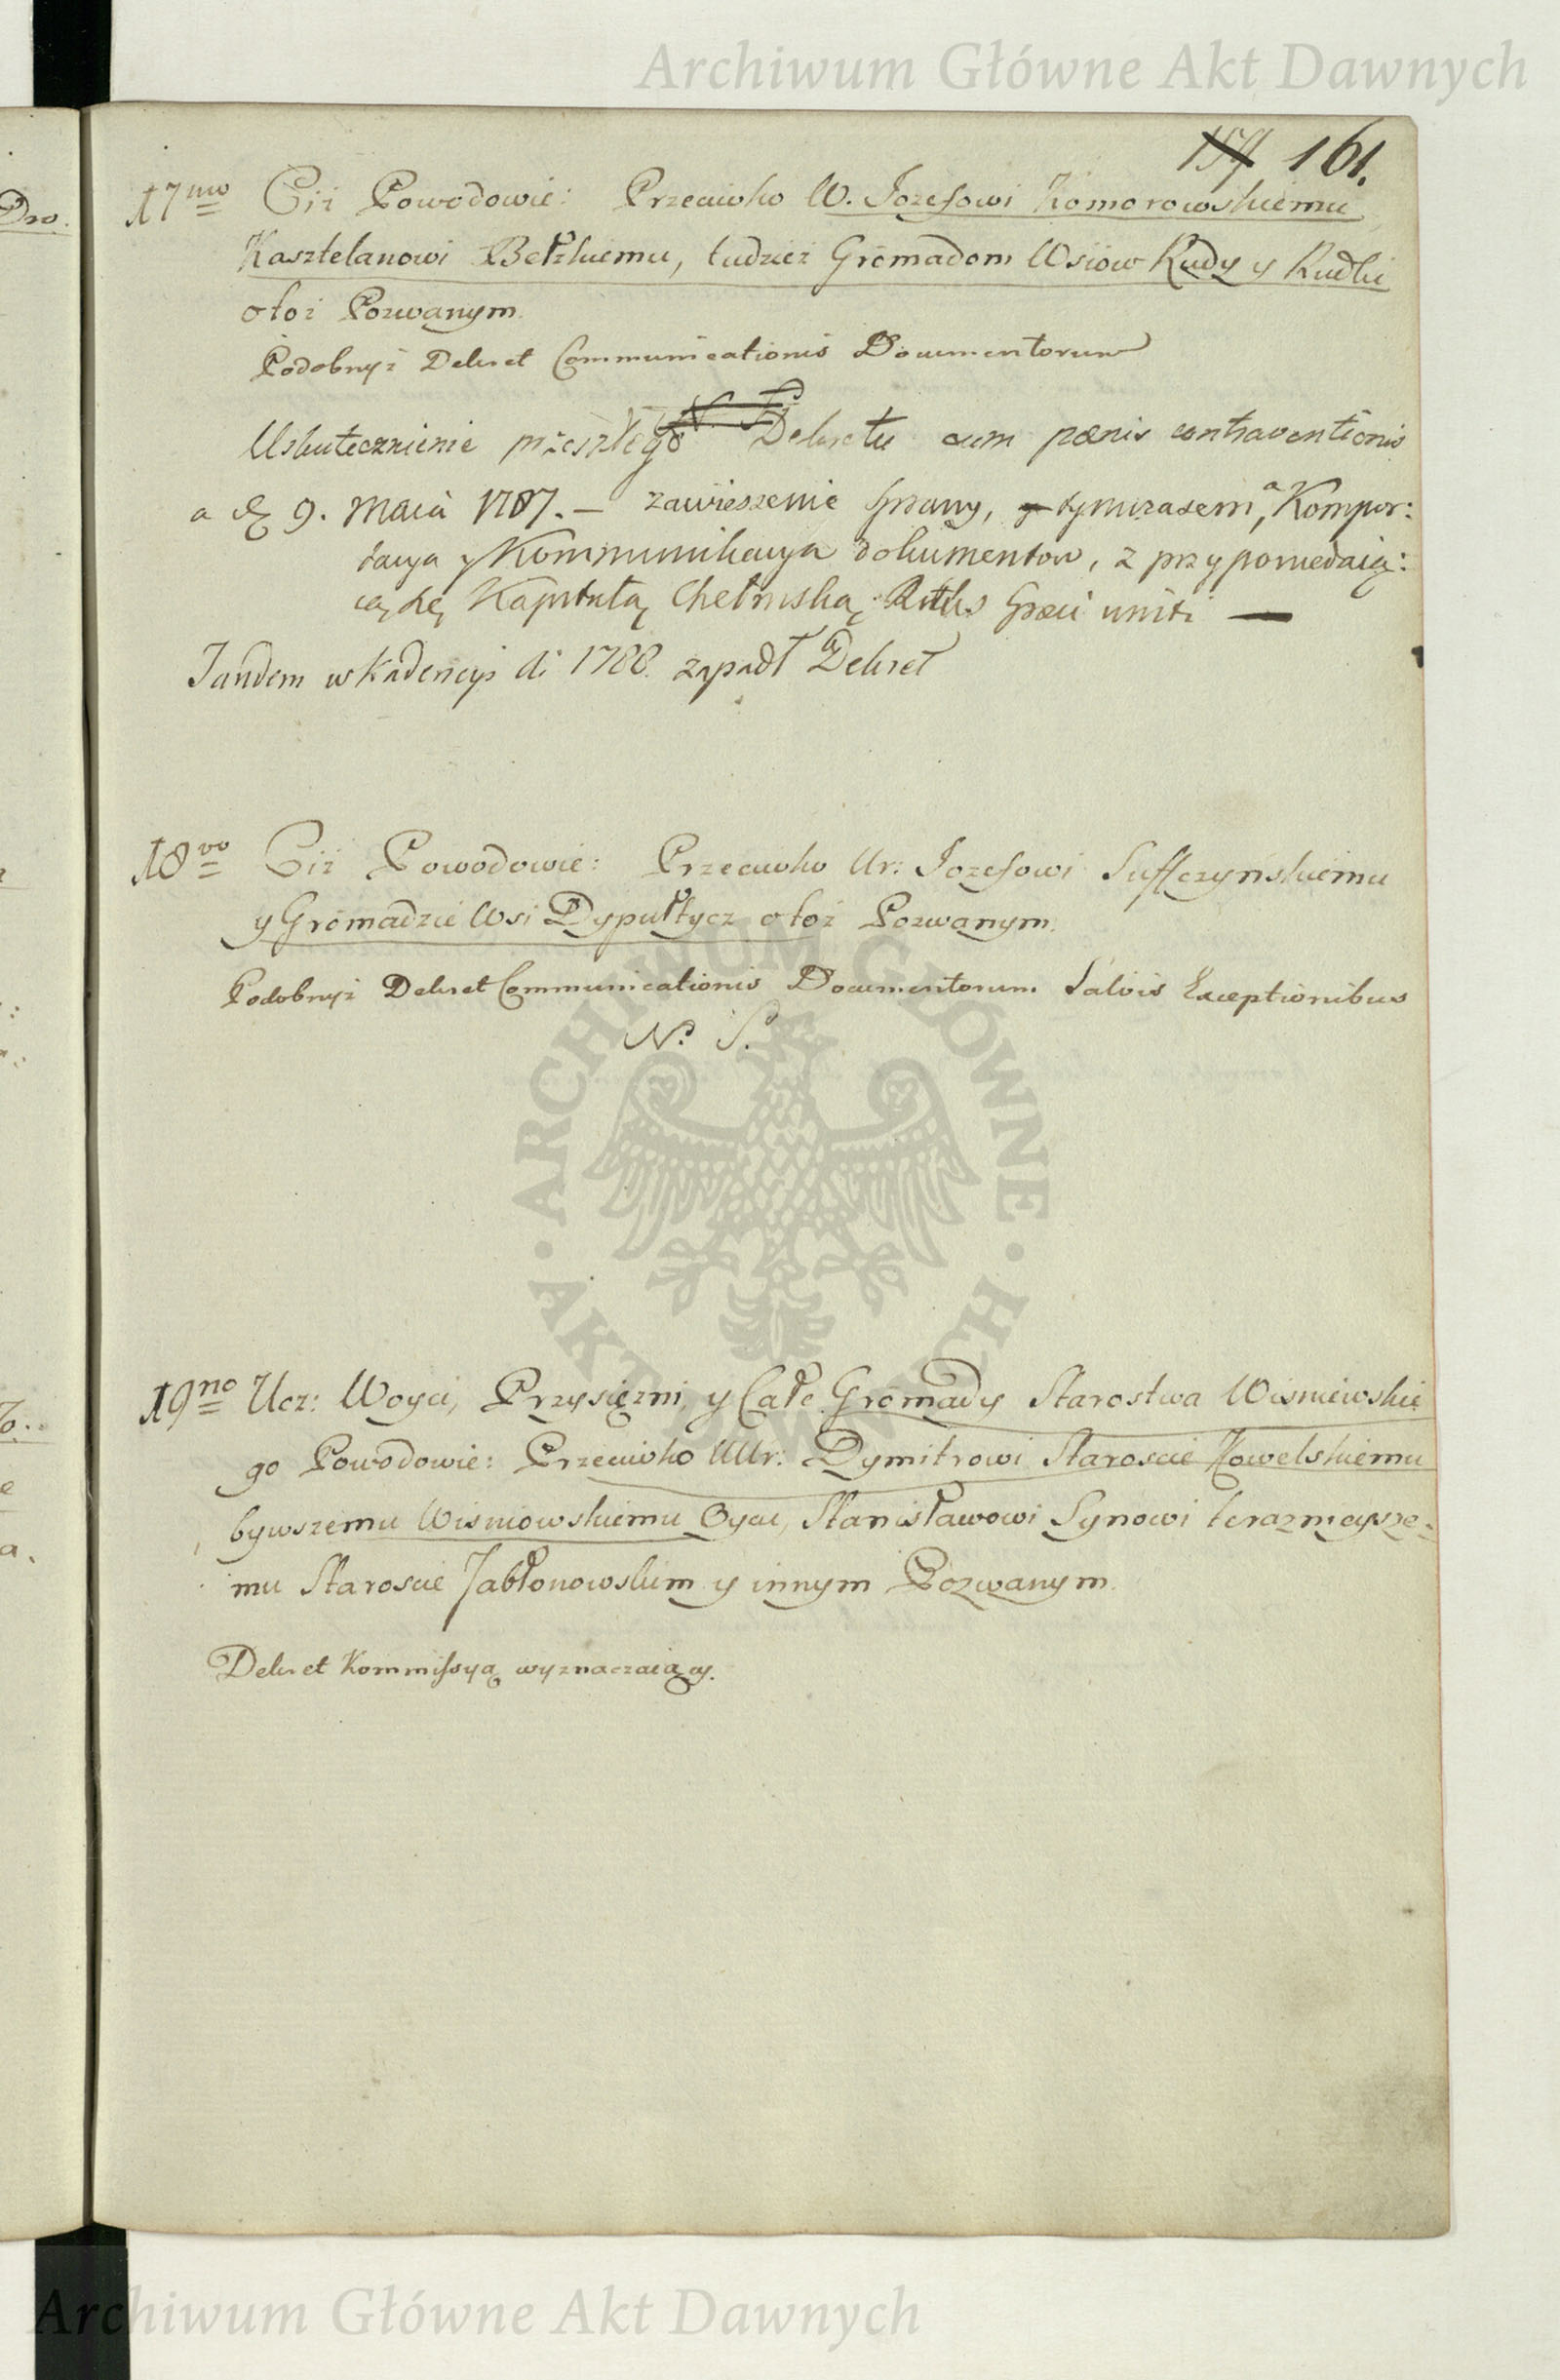 Archiwum Główne Akt Dawnych
159 161.
17mo Ciż Powodowie: Przeciwko W. Jozefowi Komorowskiemu
Kasztelanowi Bełzkiemu, tudzież Gromadom Wsiow Rudy y Rudki
otoż Pozwanym.
Podobnyż Dekret Communicationis Documentorum
N. S.
Uskutecznienie przeszłego Dekretu cum pœnis contraventionis
a d 9. Maia 1787. — zawieszenie sprawy, y tymczasem, a Kompor:
tacya y Kommunikacya dokumentow, z przypowiedaią:
cą się Kapitułą Chełmską Ritus Graeci uniti —
Tandem w Kadencyi Ai 1788. zapadł Dekret
18vo Ciż Powodowie: Przeciwko Ur: Jozefowi Suffczyńskiemu
y Gromadzie Wsi Dypułtycz otoż Pozwanym.
Podobnyż Dekret Communicationis Documentorum Salvis Exceptionibus
N. S.
ARCHIWUM GŁÓWNE AKT DAWNYCH
19no Ucz: Woyci, Przysięzni, y Całe Gromady Starostwa Wisniewskie
go Powodowie: Przeciwko UUr: Dymitrowi Staroscie Kowelskiemu
bywszemu Wisniowskiemu Oycu, Stanisławowi Synowi teraznieysze:
mu Staroscie Jabłonowskim y innym Pozwanym.
Dekret Kommissyą wyznaczaiący.
Archiwum Główne Akt Dawnych